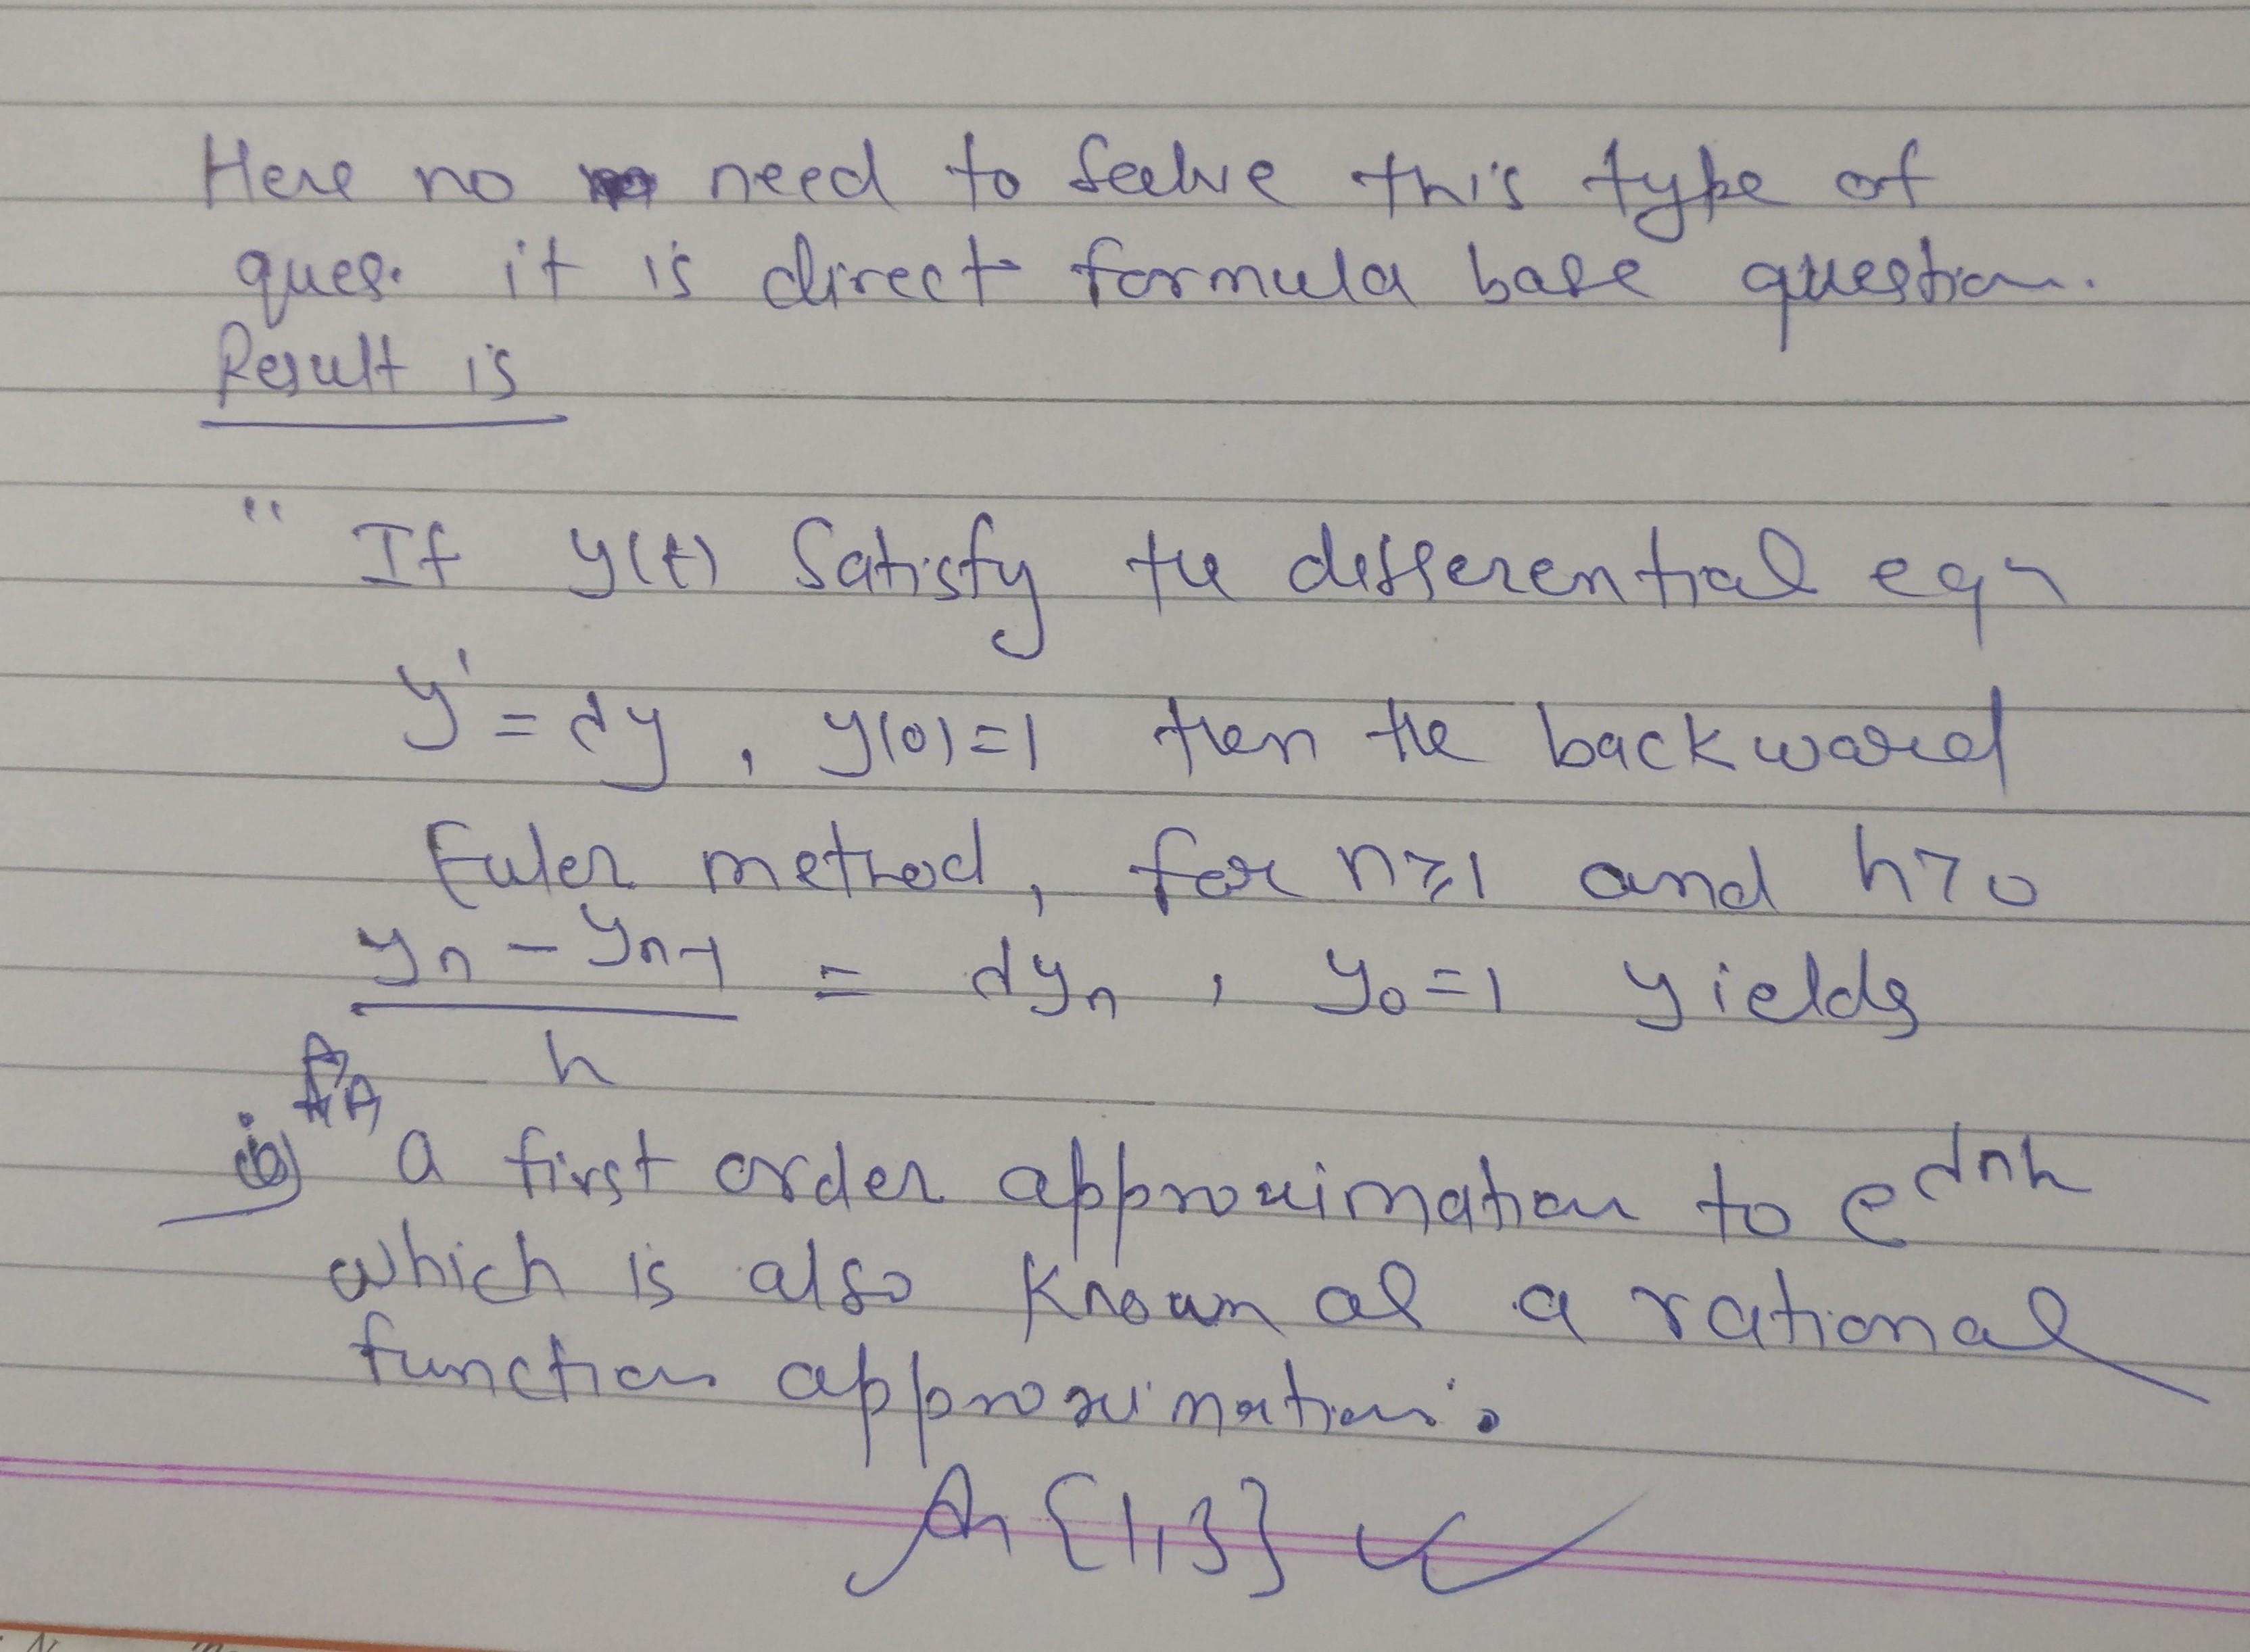 Here no need to solve this type of
ques. it is direct formula base question.
Result is
" If y(t) Satisfy the differential eqn
y' = λy , y(0)=1 then the backward
Euler method, for n≥1 and h>0
yn - yn-1 / h = λyn , y0=1 yields
a first order approximation to e^λnh
which is also known as a rational
function approximation.
An {1,3}